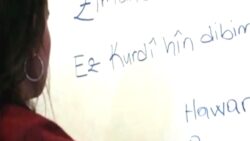 Ez Kurdî hîn dibim
Hawar